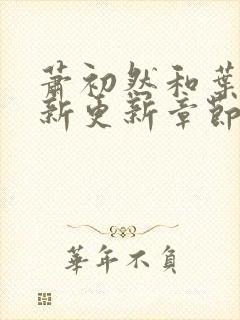 萧初然和葉
新更新章節
華年不負